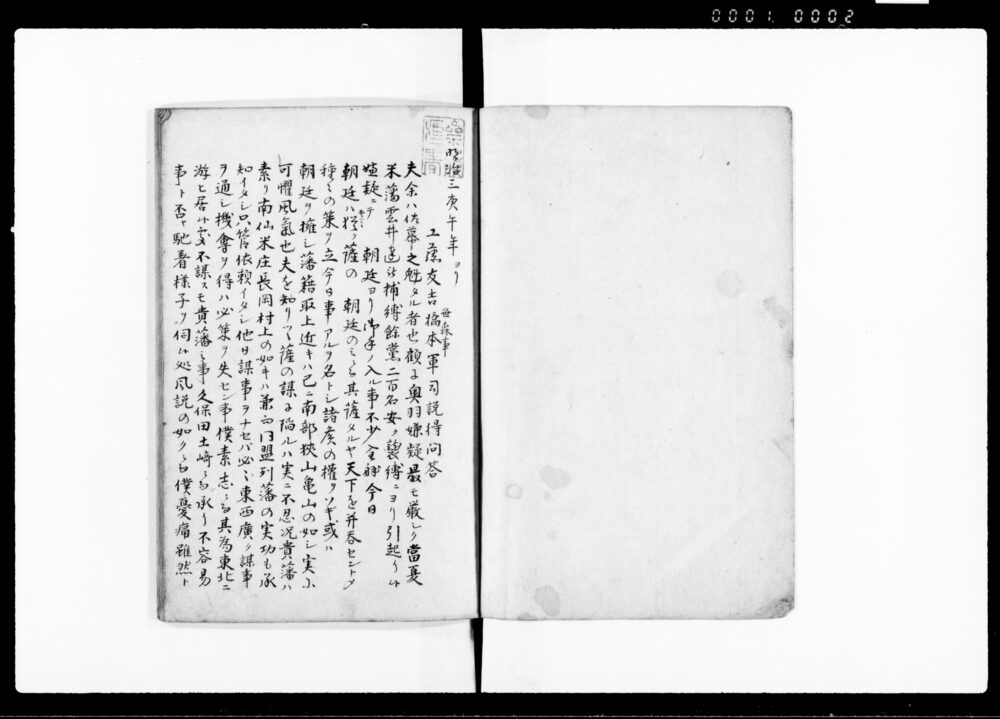 0001. 0002
明治三庚午年ヨリ
世森事
工藤友吉橋本軍司説得問答
夫余ハ佐幕之魁タル者也顧ま奥羽嫌疑最モ厳シク當夏
米藩雲井達占捕縛餘黨二百名安ク襲縛ニヨリ引起リ候
嫌疑ニテ 朝廷ヨリ御手ノ入ル事不少全躰今日
朝廷ハ 薩の 朝廷のミニ而其薩タルヤ天下を并呑セントメ
種々の策ヲ立今日事アルヲ名トシ諸矦の權ヲソギ或ハ
朝廷ヲ擁シ藩籍取上近キハ已ニ南部狹山亀山の如シ実ニ
可懼風氣也夫を知リツヽ薩の謀ま陥ルハ実ニ不忍况貴藩ハ
素リ南仙米庄長岡村上の如キハ兼而同盟列藩の実功も承
知イタシ只管依頼イタシ他日謀事ヲナセバ必ミ東西廣ク謀事
ヲ通シ機會ヲ得ハ必策ヲ失セン事僕素志ニ而其為東北ニ
游ヒ居候 不謀スモ貴藩ミ事久保田土崎ニ而承リ不容易
事ト否ヤ馳着様子ヲ伺候処風説の如クニ而僕憂痛雖然ト